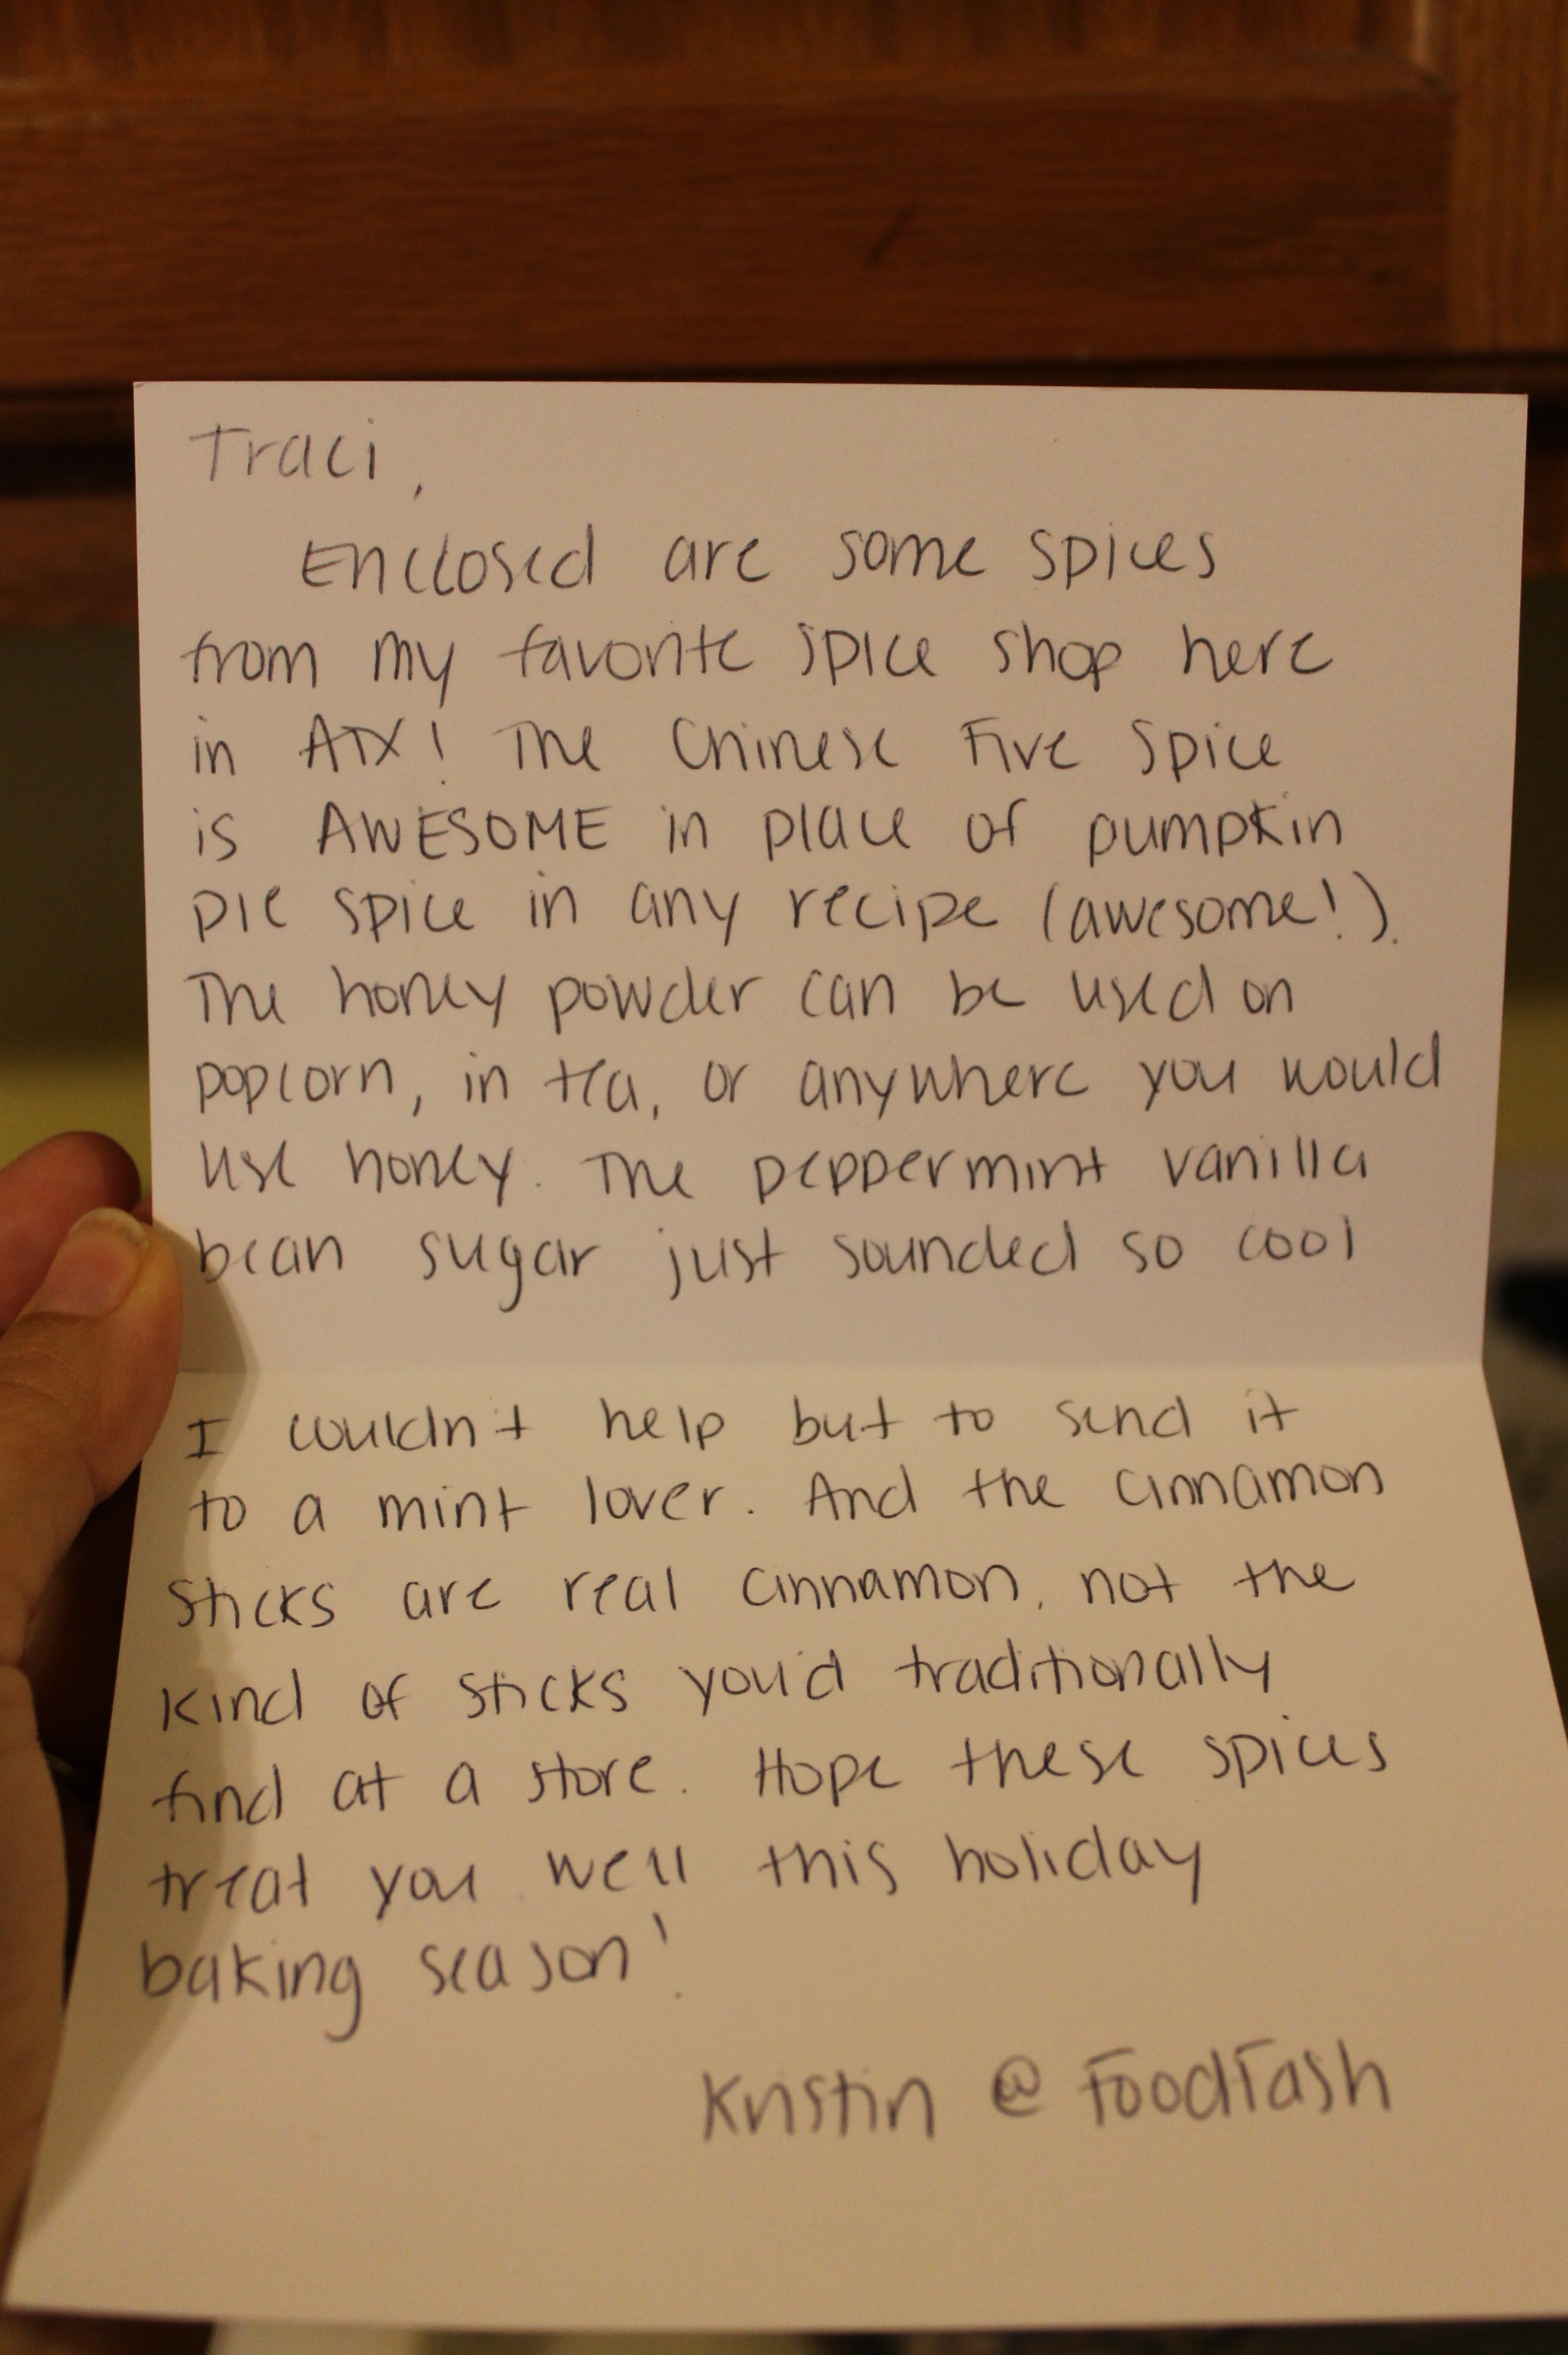 Traci,
Enclosed are some spices
from my favorite spice shop here
in ATX! The Chinese Five Spice
is AWESOME in place of pumpkin
pie spice in any recipe (awesome!).
The honey powder can be used on
popcorn, in tea, or anywhere you would
use honey. The peppermint vanilla
bean sugar just sounded so cool
I couldn't help but to send it
to a mint lover. And the cinnamon
sticks are real cinnamon, not the
kind of sticks you'd traditionally
find at a store. Hope these spices
treat you well this holiday
baking season!
Kristin @ FoodFash